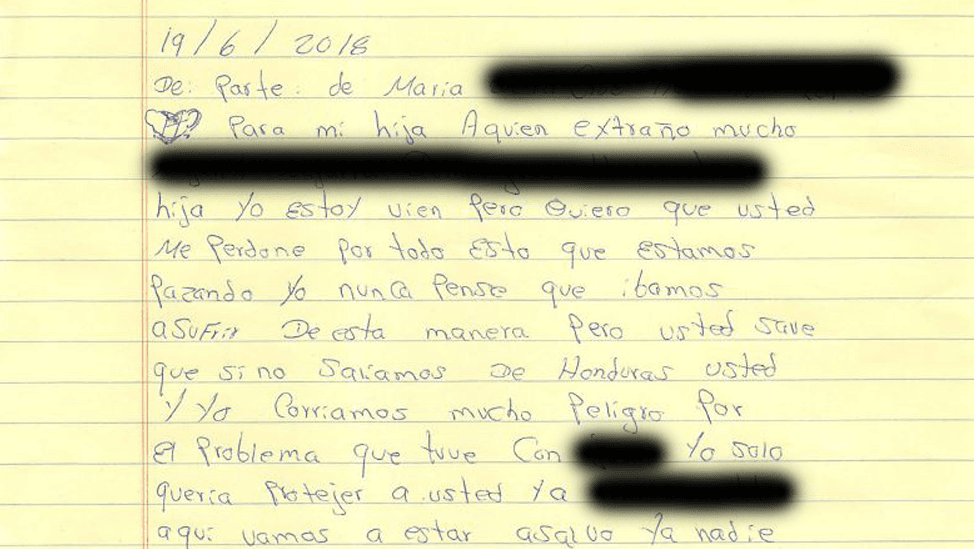 19/6/2018
De: Parte: de Maria
Para mi hija Aquien extraño mucho
hija yo estoy vien pero Quiero que usted
me perdone por todo esto que estamos
pazando yo nunca pense que ibamos
asufrir De esta manera pero usted save
que si no saliamos De Honduras usted
y yo Corriamos mucho peligro por
el problema que tuve Con yo solo
queria protejer a usted ya
aqui vamos a estar asalvo ya nadie